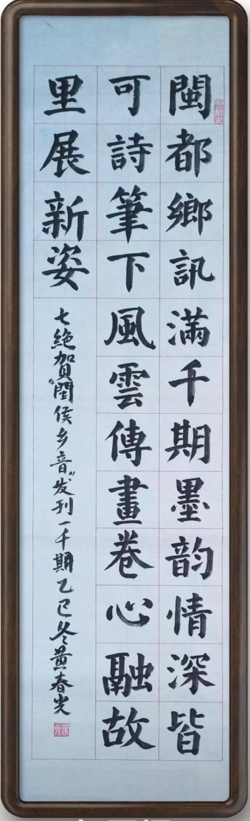 閩都鄉訊滿千期墨韵情深皆
可詩筆下風雲傳畫卷心融故
里展新姿
七絶賀“閩侯乡音”发刊一千期乙巳冬黄春光